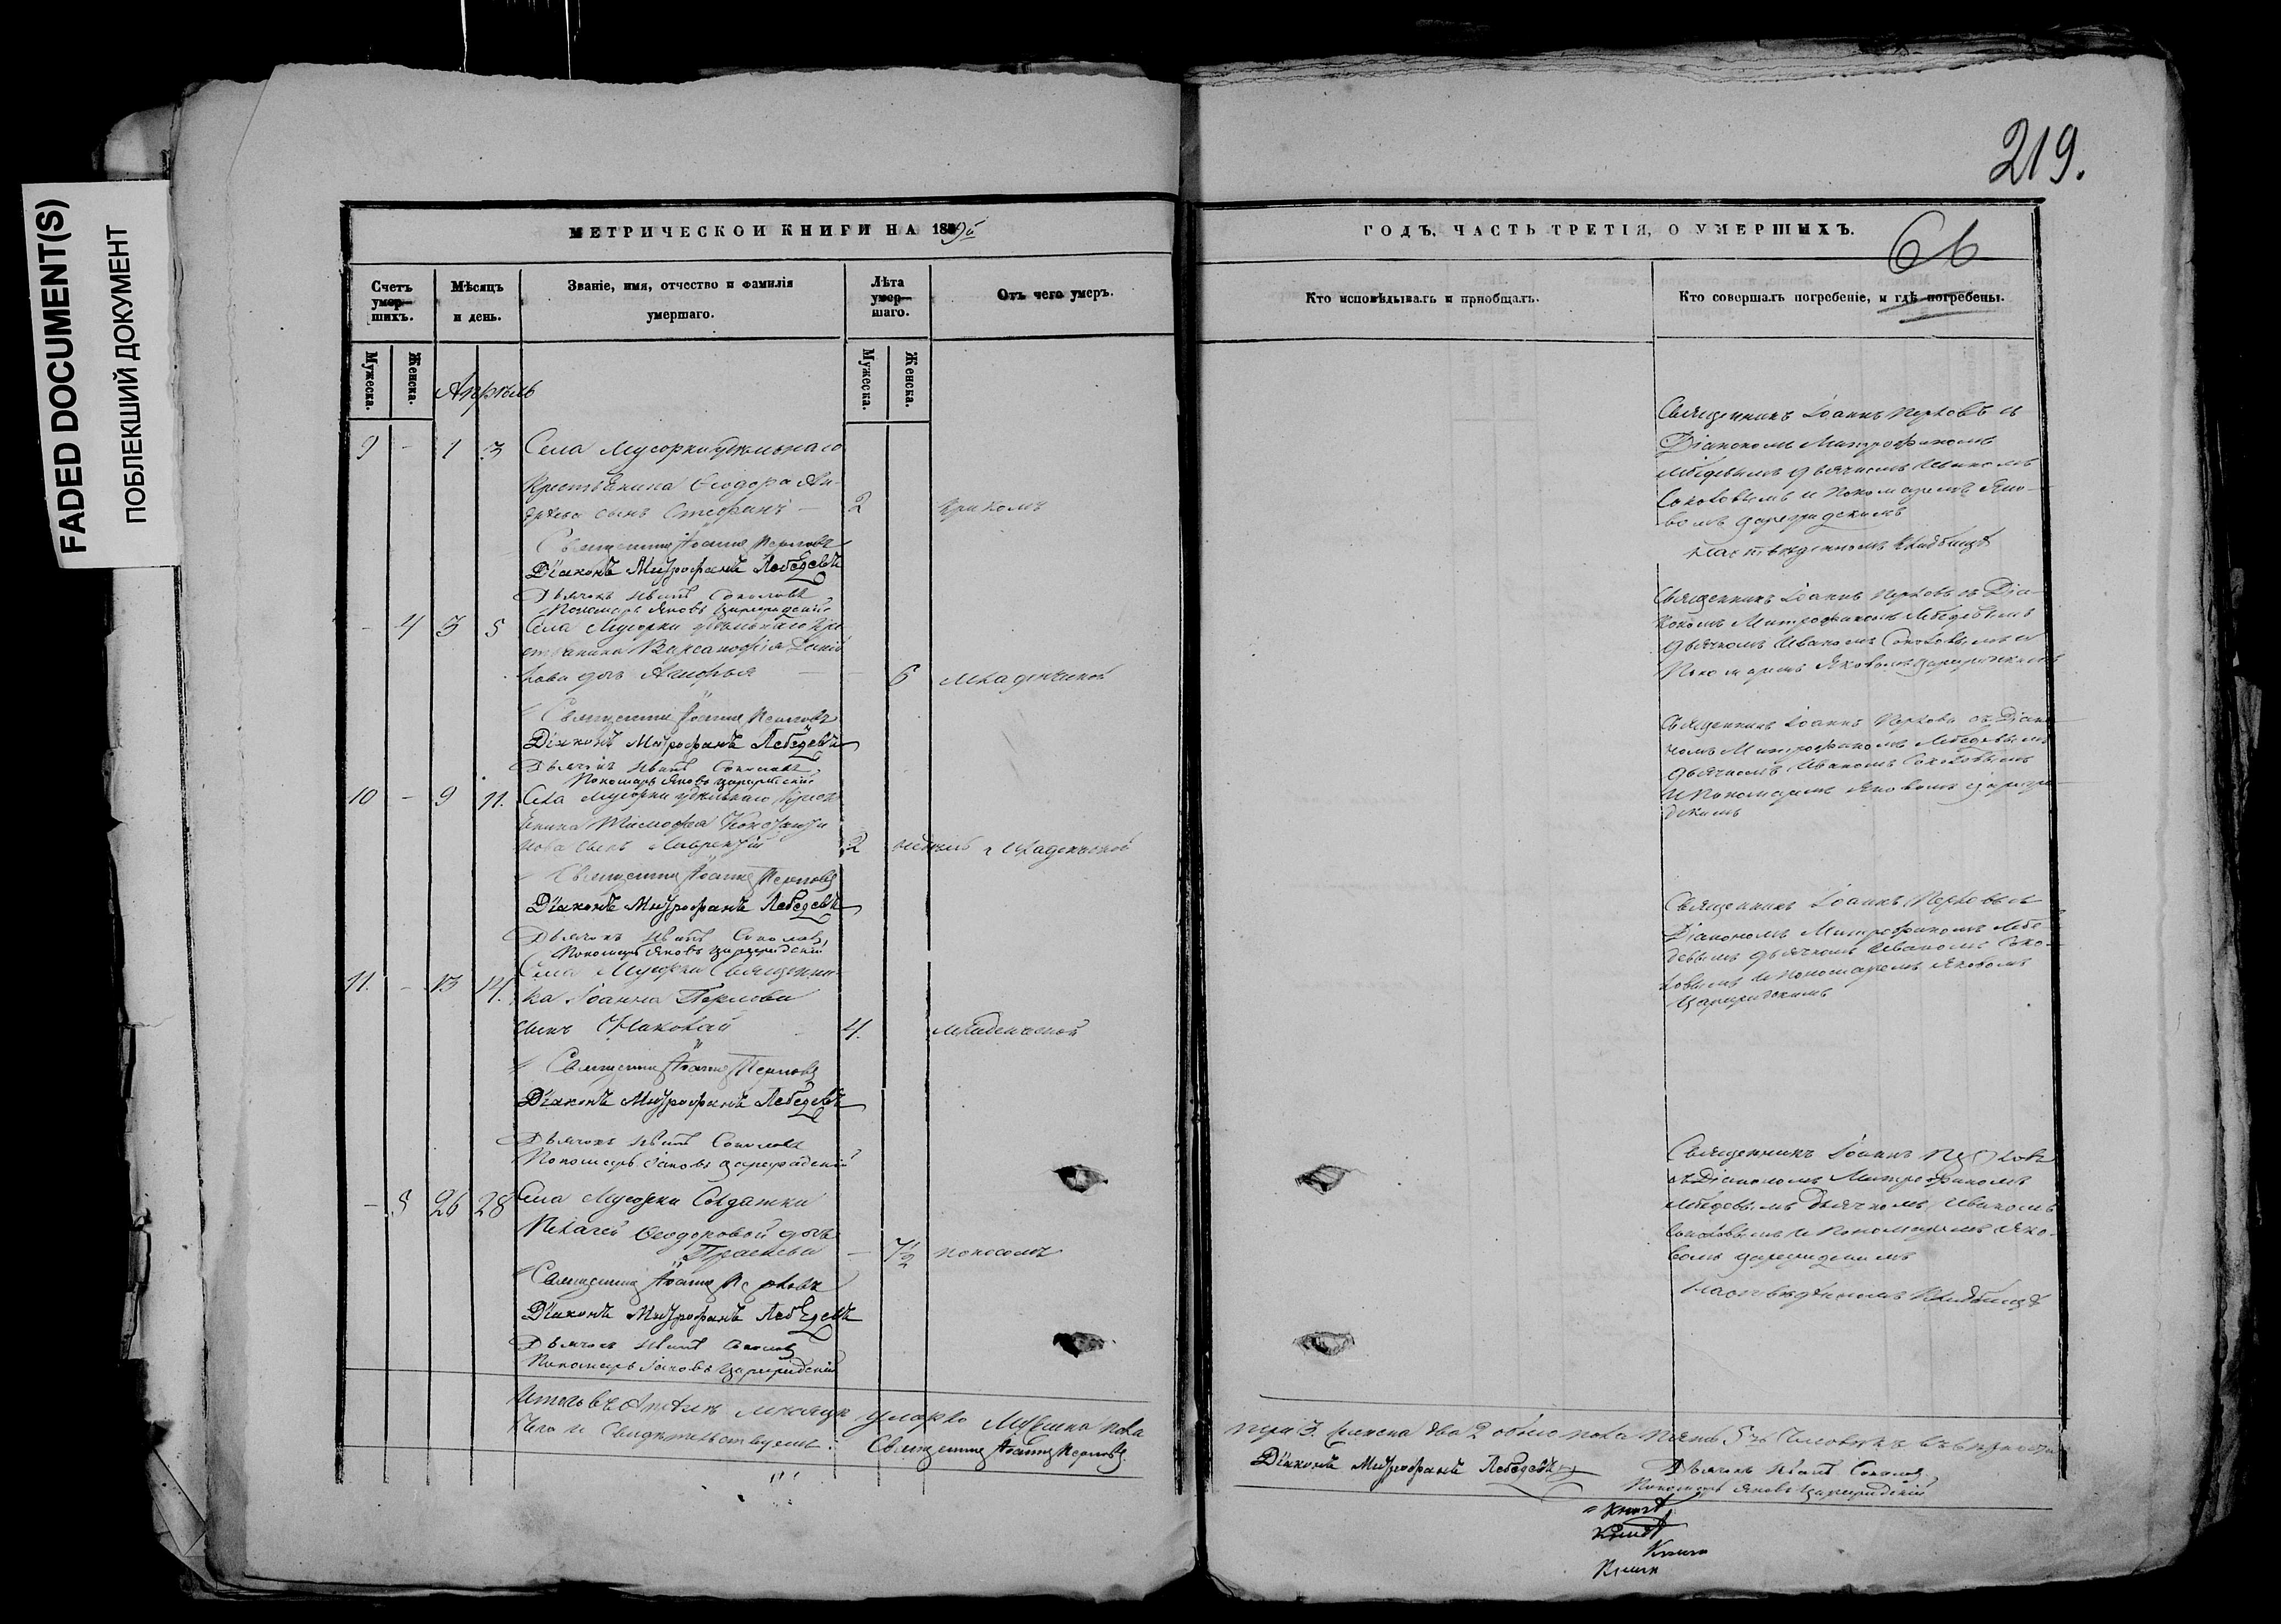 FADED DOCUMENT(S)
ПОБЛЕКШИЙ ДОКУМЕНТ
219.
МЕТРИЧЕСКОЙ КНИГИ НА 18
Счетъ умер-шихъ.
Мѣсяцъ и день.
Званіе, имя, отчество и фамилія умершаго.
Лѣта умер-шаго.
Отъ чего умеръ.
Мужеска.
Женска.
Мужеска.
Женска.
Апрѣль
9 - 1 3 Села Мусорки удѣльнаго
крестьянина Ѳеодора Ан-
дрѣева сынъ Стефанъ — 2
Священникъ Іоаннъ Перловъ
Діаконъ Митрофанъ Лебедевъ
Дьячокъ Иванъ Соколовъ
Пономарь Яковъ Цареградскій
- 4 3 5 Села Мусорки удѣльнаго кре
стьянина
дочь 6 младенческой
Священникъ Іоаннъ Перловъ
Діаконъ Митрофанъ Лебедевъ
Дьячокъ Иванъ Соколовъ
Пономарь Яковъ Цареградскій
10 - 9 11. Села Мусорки удѣльнаго крест
янина Тимофея Константи
нова сынъ Лаврентій 2 недѣль младенческой
Священникъ Іоаннъ Перловъ
Діаконъ Митрофанъ Лебедевъ
Дьячокъ Иванъ Соколовъ
Пономарь Яковъ Цареградскій
11. - 13 14. Села Мусорки Священни
ка Іоанна Перлова
сынъ Николай 4. младенческой
Священникъ Іоаннъ Перловъ
Діаконъ Митрофанъ Лебедевъ
Дьячокъ Иванъ Соколовъ
Пономарь Іаковъ Цареградскій
- 5 26 28 Села Мусорки Солдатки
Пелагеи Ѳеодоровой дочь
— 7 1/2 поносомъ
Священникъ Іоаннъ Перловъ
Діаконъ Митрофанъ Лебедевъ
Дьячокъ Иванъ Соколовъ
Пономарь Іаковъ Цареградскій
Итого въ Апрѣлѣ мѣсяцѣ умерло Мужеска пола
чего и свидѣтельствуемъ: Священникъ Іоаннъ Перловъ
ГОДЪ, ЧАСТЬ ТРЕТІЯ, О УМЕРШИХЪ.
Кто исповѣдывалъ и пріобщалъ.
Кто совершалъ погребеніе, и гдѣ погребены.
Священникъ Іоаннъ Перловъ съ
Діакономъ Митрофаномъ
Лебедевымъ дьячкомъ Иваномъ
Соколовымъ и Пономаремъ Яко-
вомъ Цареградскимъ
кладбищѣ
Священникъ Іоаннъ Перловъ съ Діа-
кономъ Митрофаномъ Лебедевымъ
дьячкомъ Иваномъ Соколовымъ и
Пономаремъ Яковомъ Цареградскимъ
Священникъ Іоаннъ Перловъ съ Діако-
номъ Митрофаномъ Лебедевымъ
дьячкомъ Иваномъ Соколовымъ
и Пономаремъ Яковомъ Цареgра-
дскимъ
Священникъ Іоаннъ Перловъ съ
Діакономъ Митрофаномъ Лебе-
девымъ дьячкомъ Иваномъ Соко-
ловымъ и Пономаремъ Яковомъ
Цареградскимъ
Священникъ Іоаннъ Перловъ
съ Діакономъ Митрофаномъ
Лебедевымъ Дьячкомъ Иваномъ
Соколовымъ и Пономаремъ Яко-
вомъ Цареградскимъ
кладбищѣ
три 3. Женска два 2 обоего пола пять 5 человѣкъ
Діаконъ Митрофанъ Лебедевъ Дьячокъ Иванъ Соколовъ
Пономарь Яковъ Цареградскій